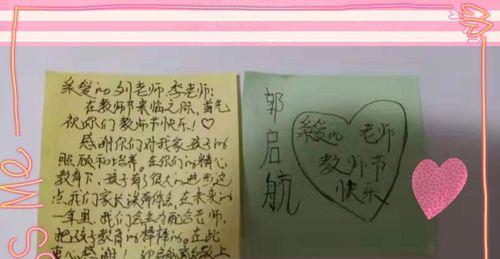 亲爱的刘老师李老师:
在教师节来临之际,首先
祝你们教师节快乐!♡
感谢你们对我家孩子的
照顾和培养。在你们的精心
教育下,孩子有了很大的进步这
点我们家长深有体会,在未来的
一年里,我们会全力配合老师,
把孩子教育的棒棒的。在此
衷心感谢!
郭启航
亲爱的 老师
教师节
快乐
ME